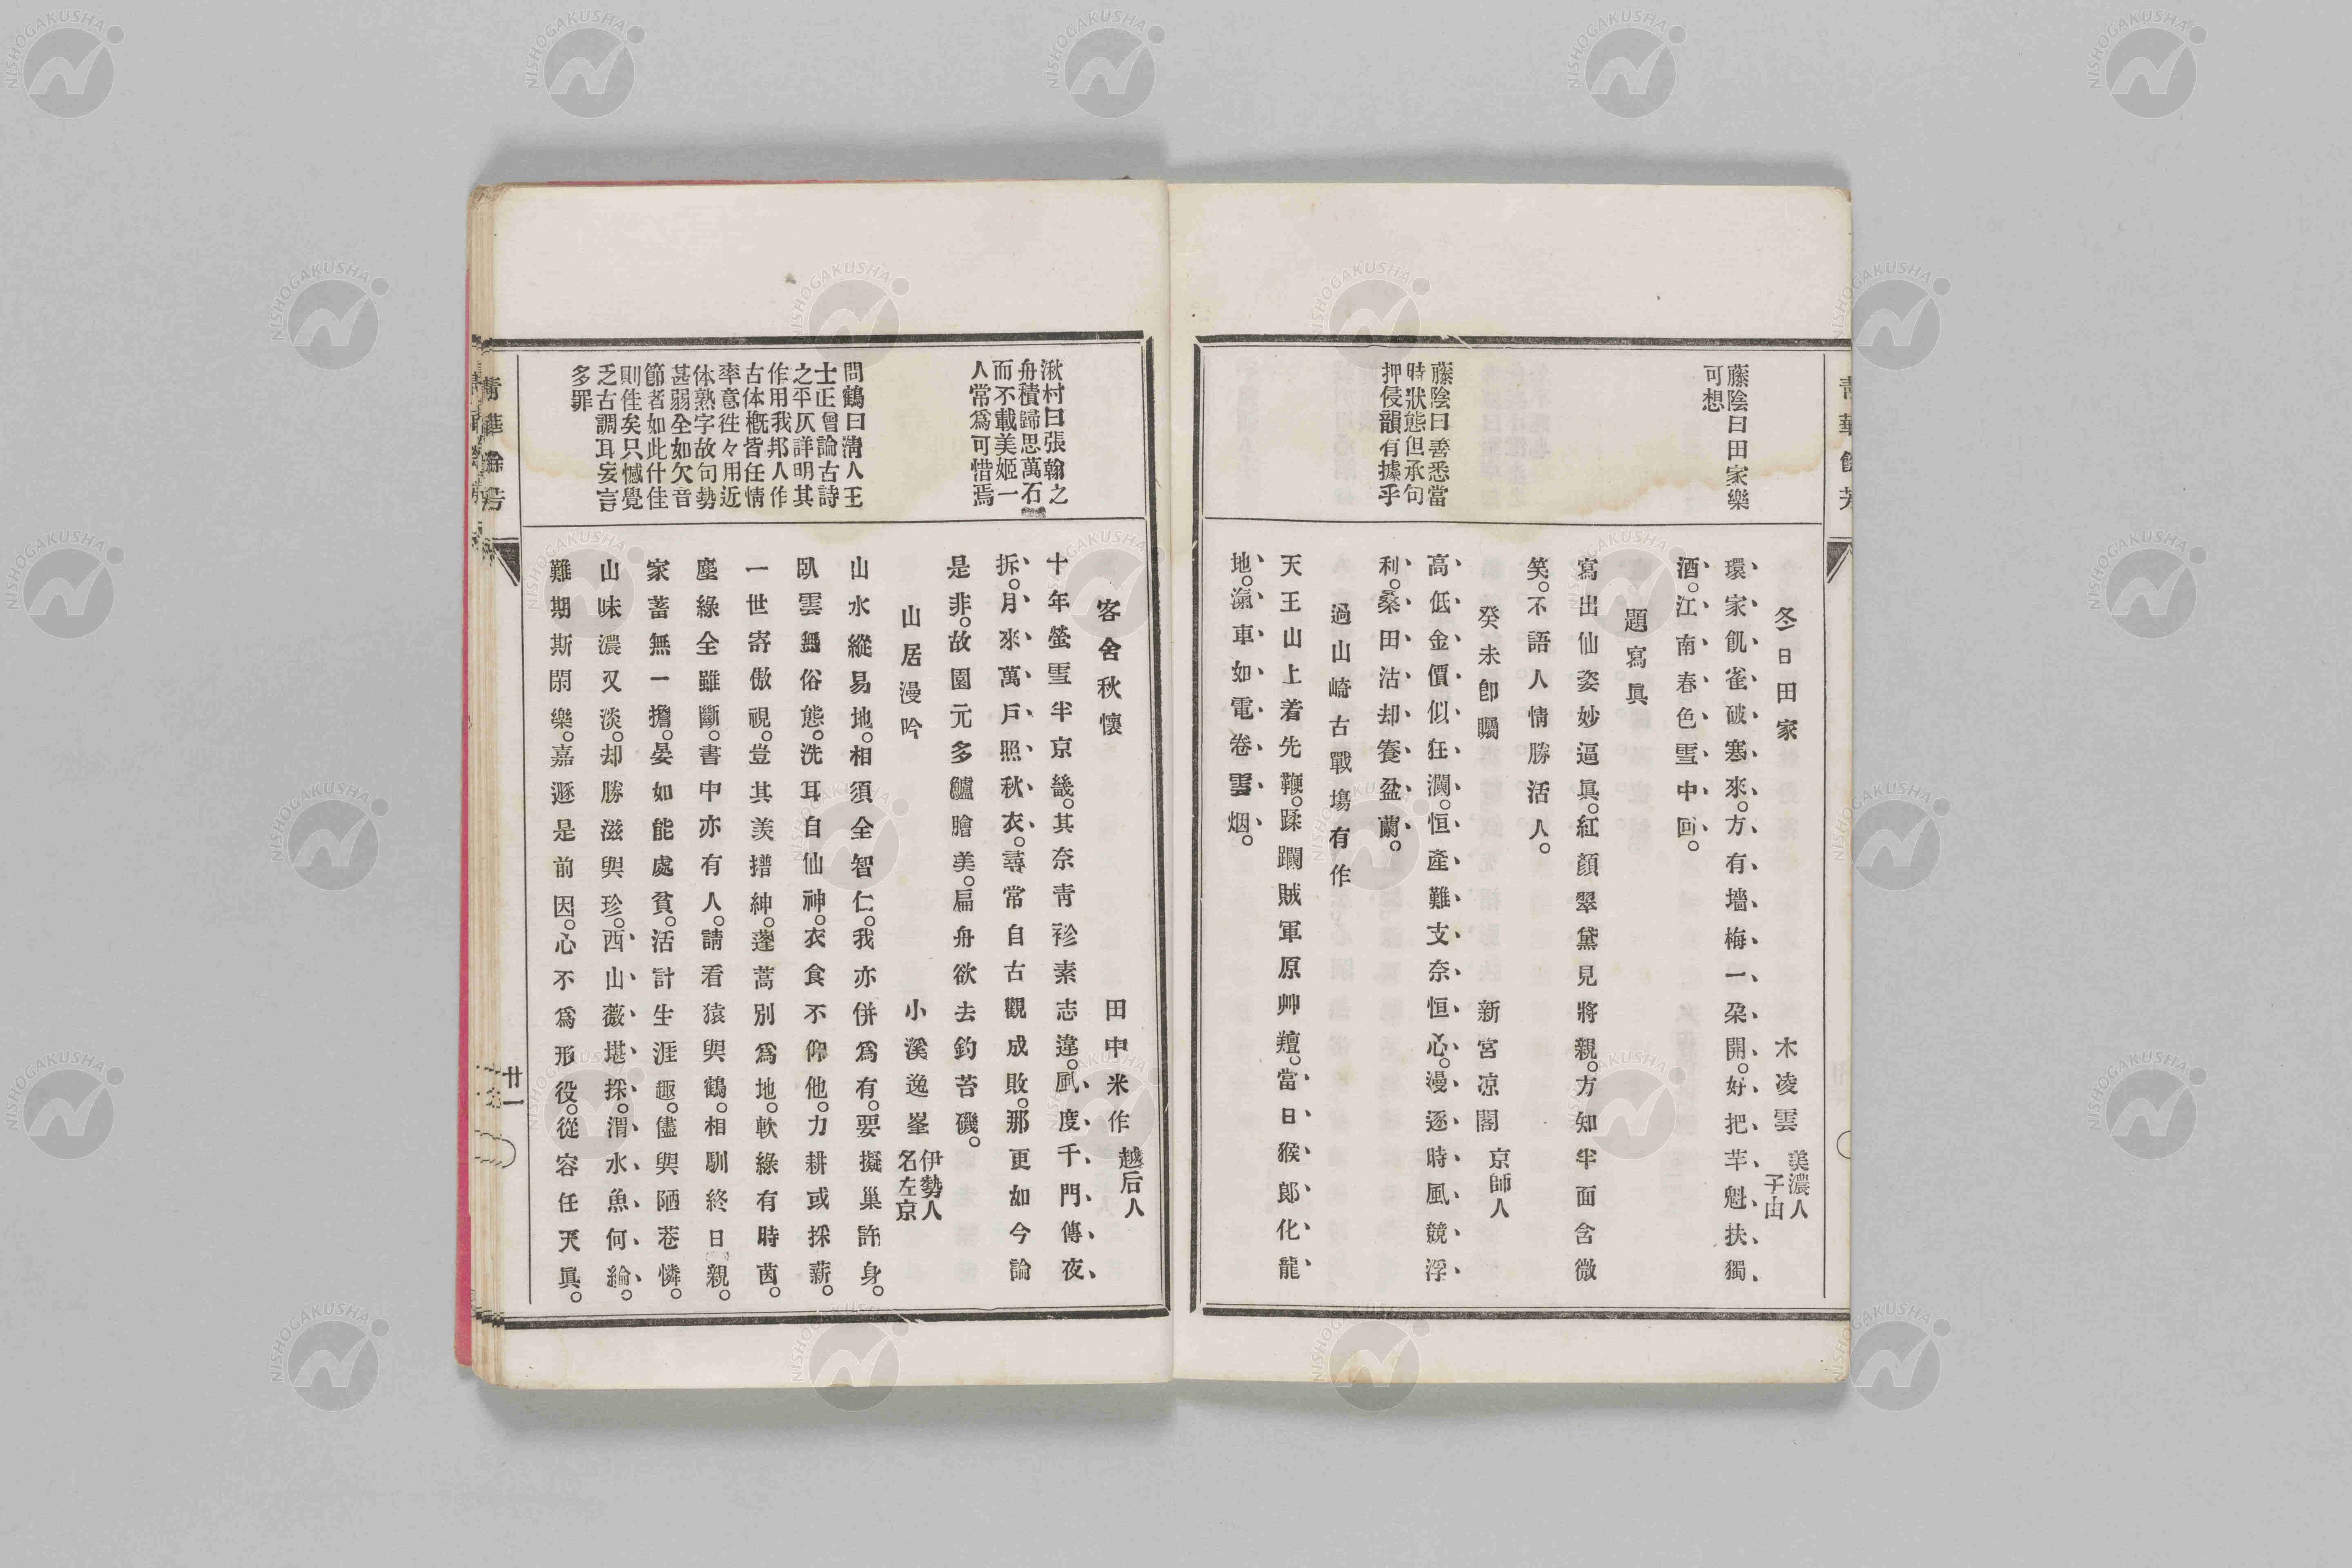 藤陰曰田家樂
可想
藤陰曰善悉當
時狀態但承句
押侵韻有據乎
冬日田家
木凌雲
美濃人
子由
環家飢雀破寒來。方有墻梅一朶開。好把芋魁扶獨
酒。江南春色雪中回。
題寫眞
寫出仙姿妙逼眞。紅顏翠黛見將親。方知半面含微
笑。不語人情勝活人。
癸未卽矚
新宮凉閣
京師人
高低金價似狂瀾。恒產難支奈恒心。漫逐時風競浮
利。桑田沽却養盆蘭。
過山崎古戰塲有作
天王山上着先鞭。蹂躪賊軍原艸羶。當日猴郞化龍
地。瀛車如電卷雲烟。
湫村曰張翰之
舟積歸思萬石
而不載美姬一
人常爲可惜焉
問鶴曰淸人王
士正曾論古詩
之平仄詳明其
作用我邦人作
古体槪皆任情
率意徃々用近
体熟字故句勢
甚弱全如欠音
節者如此什佳
則佳矣只憾覺
乏古調耳妄言
多罪
客舍秋懷
田中米作
越后人
十年螢雪半京畿。其奈靑衫素志違。風度千門傳夜
拆。月來萬戶照秋衣。尋常自古觀成敗。那更如今論
是非。故園元多鱸膾美。扁舟欲去釣苔磯。
山居漫吟
小溪逸峯
伊勢人
名左京
山水縱易地。相須全智仁。我亦併爲有。要擬巢許身。
臥雲無俗態。洗耳自仙神。衣食不仰他。力耕或採薪。
一世寄傲視。豈其羨搢紳。蓬蒿別爲地。軟綠有時茵。
塵緣全雖斷。書中亦有人。請看猿與鶴。相馴終日親。
家蓄無一擔。晏如能處貧。活計生涯趣。儘與陋巷憐。
山味濃又淡。却勝滋與珍。西山薇堪採。渭水魚何綸。
難期斯閑樂。嘉遯是前因。心不爲形役。從容任天眞。
廿一